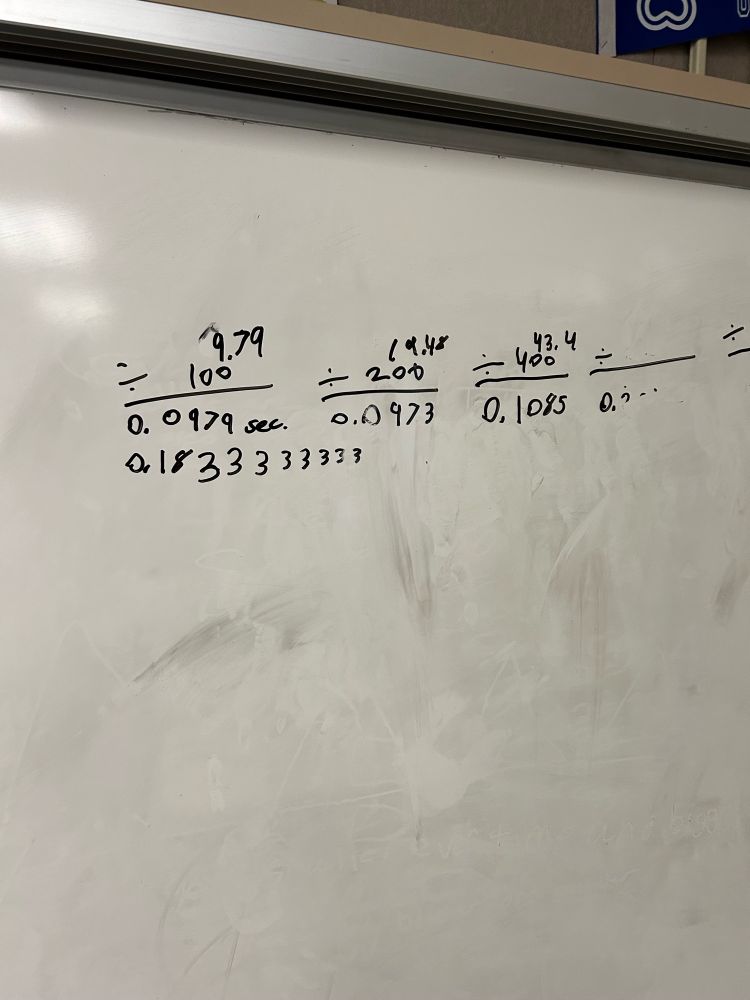 9.79
÷ 100
0.0979 sec.
0.1833333333
19.48
÷ 200
0.0973
43.4
÷ 400
0.1085
÷
0.
÷